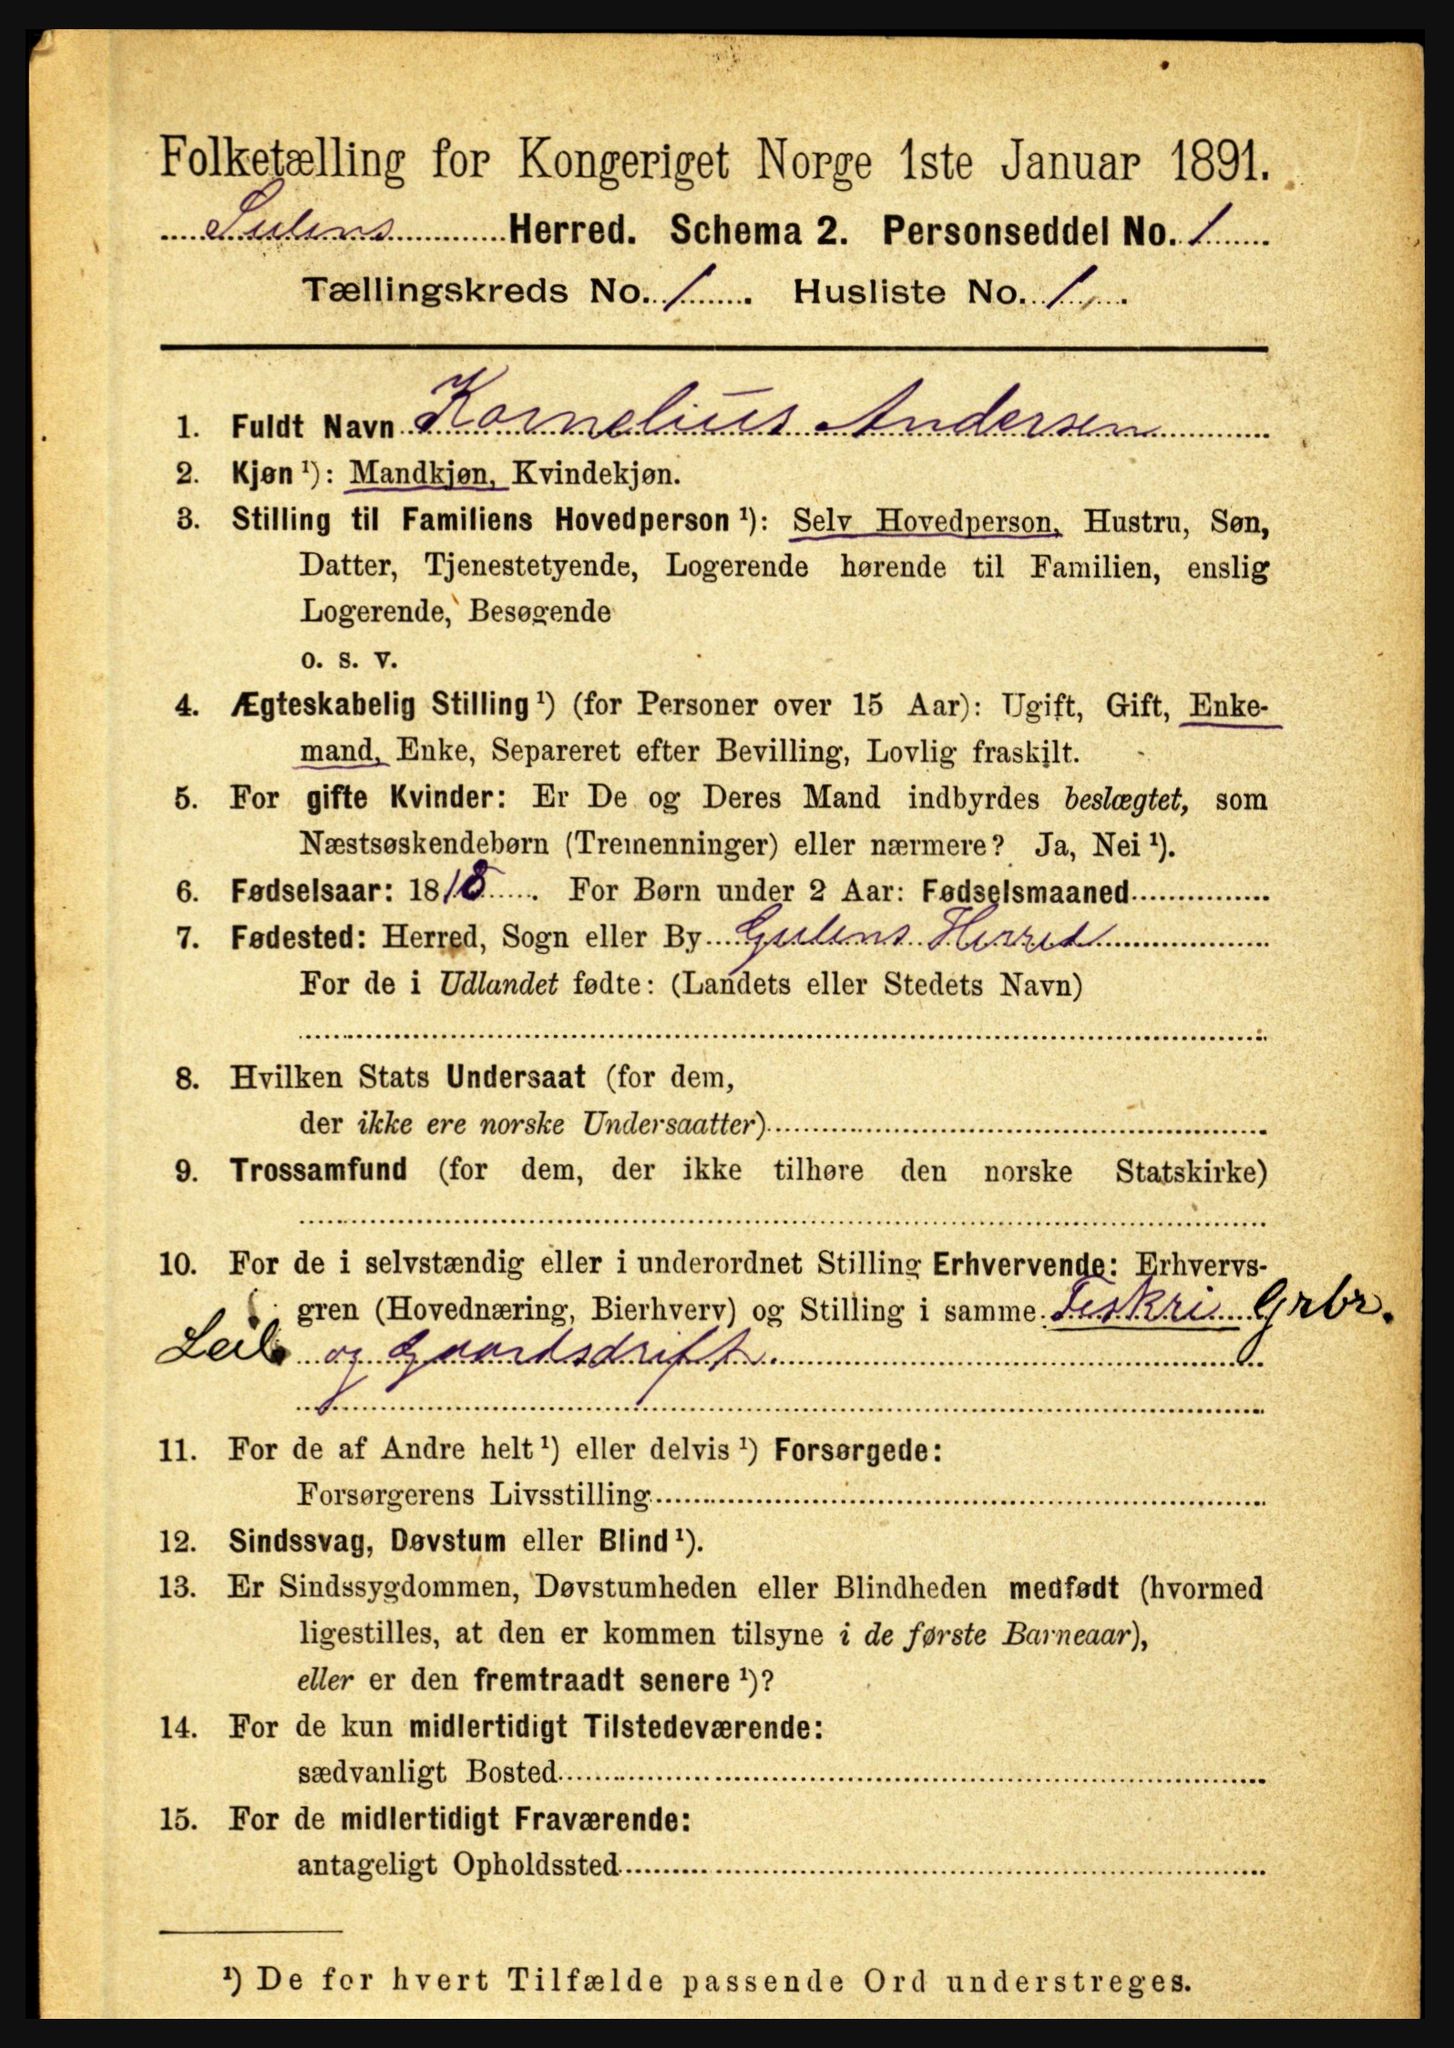 Folketælling for Kongeriget Norge 1ste Januar 1891.
Sulens Herred. Schema 2. Personseddel No. 1
Tællingskreds No. 1. Husliste No. 1.
1. Fuldt Navn Kornelius Andersen
2. Kjøn ¹): Mandkjøn, Kvindekjøn.
3. Stilling til Familiens Hovedperson ¹): Selv Hovedperson, Hustru, Søn,
Datter, Tjenestetyende, Logerende hørende til Familien, enslig
Logerende, Besøgende
o. s. v.
4. Ægteskabelig Stilling ¹) (for Personer over 15 Aar): Ugift, Gift, Enke-
mand, Enke, Separeret efter Bevilling, Lovlig fraskilt.
5. For gifte Kvinder: Er De og Deres Mand indbyrdes beslægtet, som
Næstsøskendebørn (Tremenninger) eller nærmere? Ja, Nei ¹).
6. Fødselsaar: 1818. For Børn under 2 Aar: Fødselsmaaned
7. Fødested: Herred, Sogn eller By Gulens Herred
For de i Udlandet fødte: (Landets eller Stedets Navn)
8. Hvilken Stats Undersaat (for dem,
der ikke ere norske Undersaatter)
9. Trossamfund (for dem, der ikke tilhøre den norske Statskirke)
10. For de i selvstændig eller i underordnet Stilling Erhvervende: Erhvervs-
gren (Hovednæring, Bierhverv) og Stilling i samme Fiskri Grbr.
Leil. og Gaardsdrift
11. For de af Andre helt ¹) eller delvis ¹) Forsørgede:
Forsørgerens Livsstilling
12. Sindssvag, Døvstum eller Blind ¹).
13. Er Sindssygdommen, Døvstumheden eller Blindheden medfødt (hvormed
ligestilles, at den er kommen tilsyne i de første Barneaar),
eller er den fremtraadt senere ¹)?
14. For de kun midlertidigt Tilstedeværende:
sædvanligt Bosted
15. For de midlertidigt Fraværende:
antageligt Opholdssted
¹) De for hvert Tilfælde passende Ord understreges.